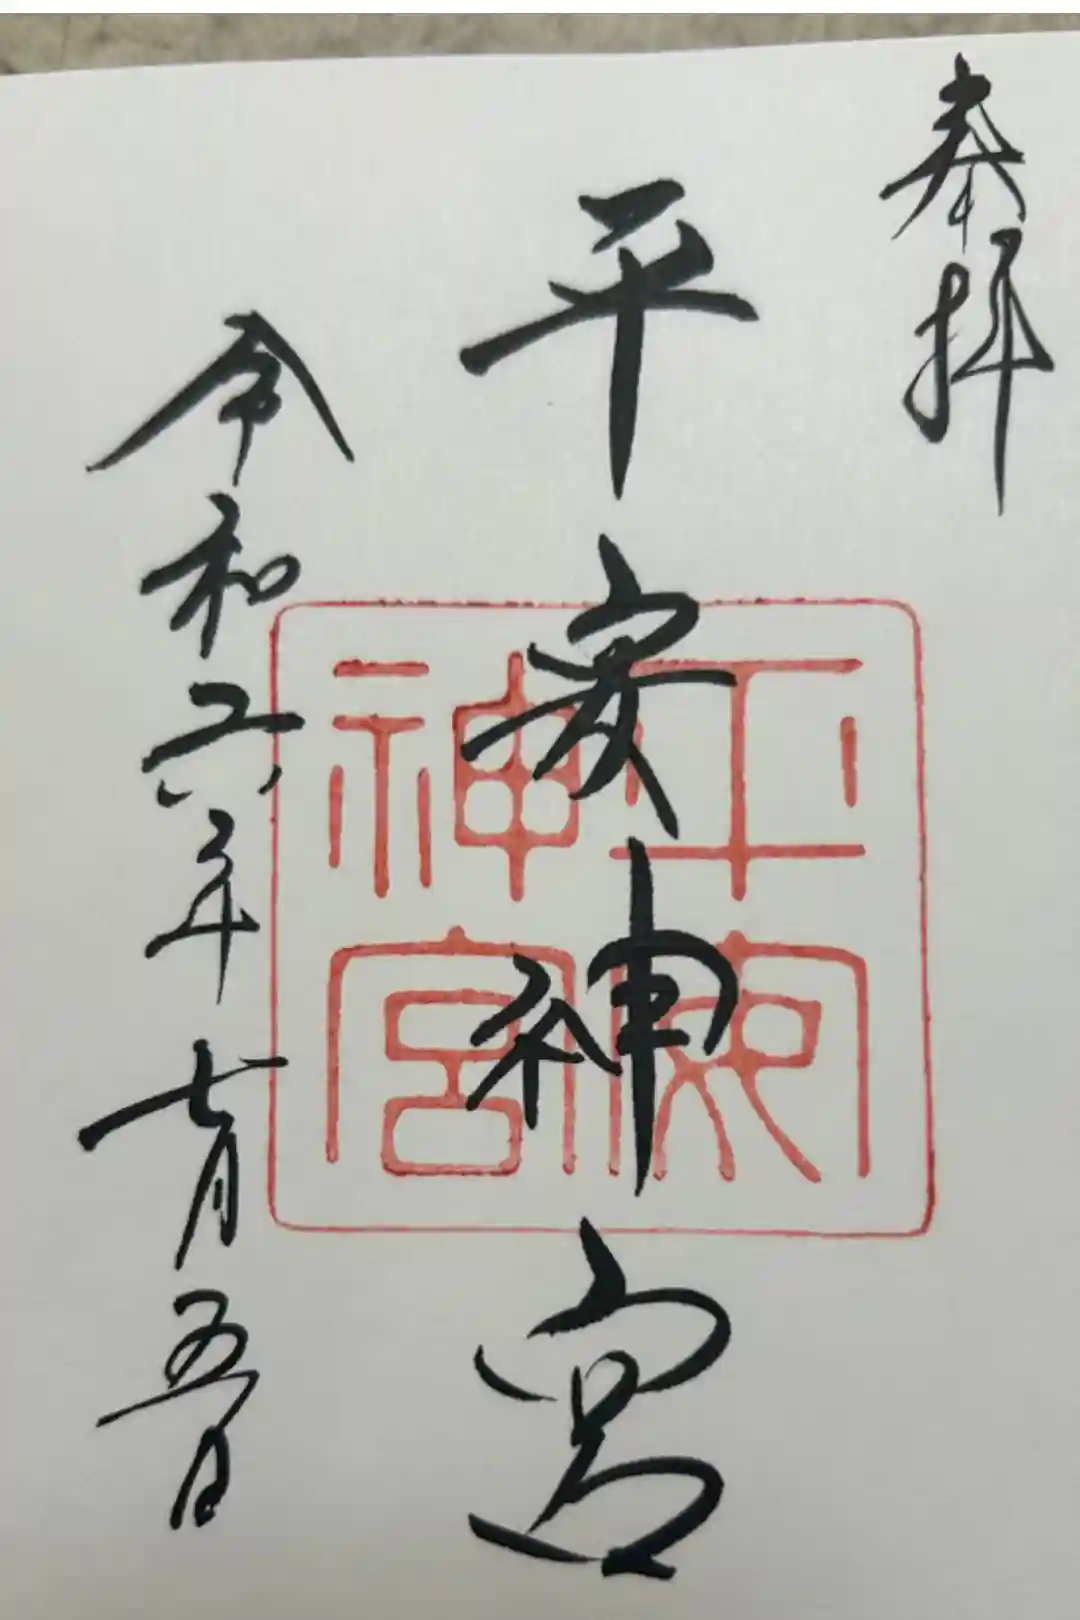 奉拝
平安神宮
令和六年七月五日
平安神宮